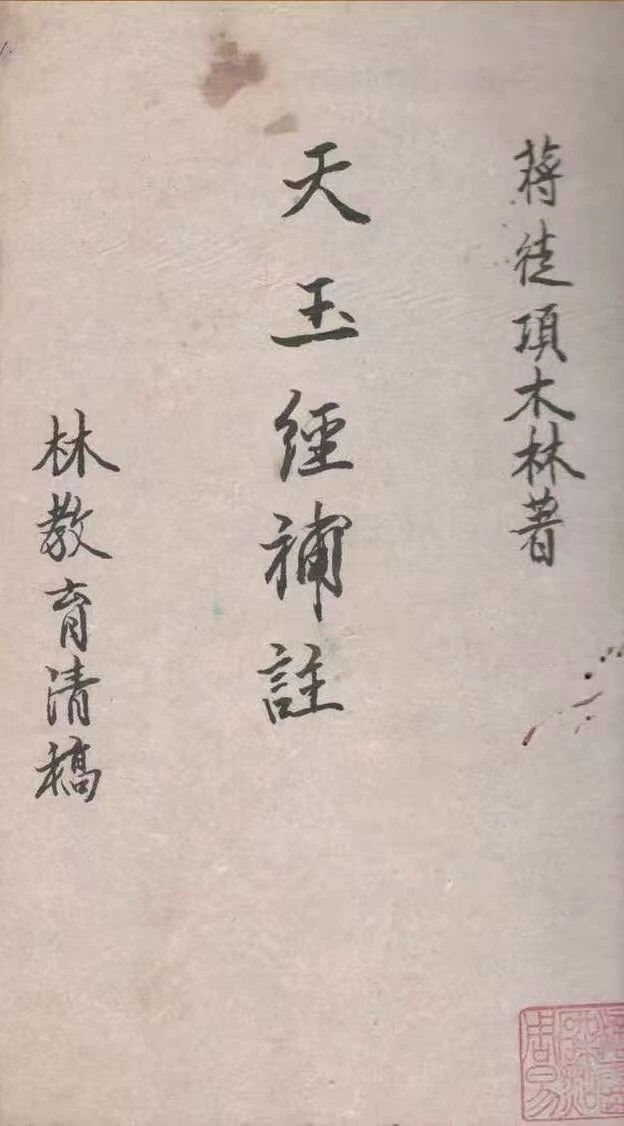 蔣徒項木林著
天玉經補註
林教育清稿
周易